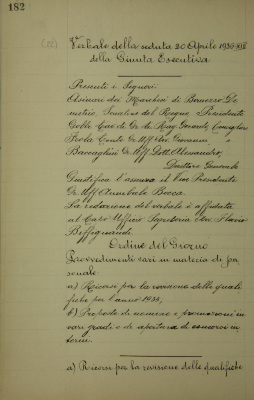 182
Verbale della seduta 20 Aprile 1936 XIV
della Giunta Esecutiva
Presenti i Signori:
Asinari dei Marchesi di Bernezzo De-
metrio, Senatore del Regno, Presidente
Dott.
Conte Dr. Uff. Giovanni
Baccaglini Dr. Uff. Dott. Alessandro,
Direttore Generale
Giustifica l'assenza il Vice Presidente
Gr. Uff. Annibale Bocca.
La redazione del verbale è affidata
al Capo Ufficio Segreteria Flavio
Beffignandi.
Ordine del Giorno
Provvedimenti vari in materia di per-
sonale:
a) Ricorsi per la revisione delle quali-
fiche per l'anno 1935,
b) Proposte di nomine e promozioni in
vari gradi e di apertura di concorsi in-
terni.
a) Ricorsi per la revisione delle qualifiche